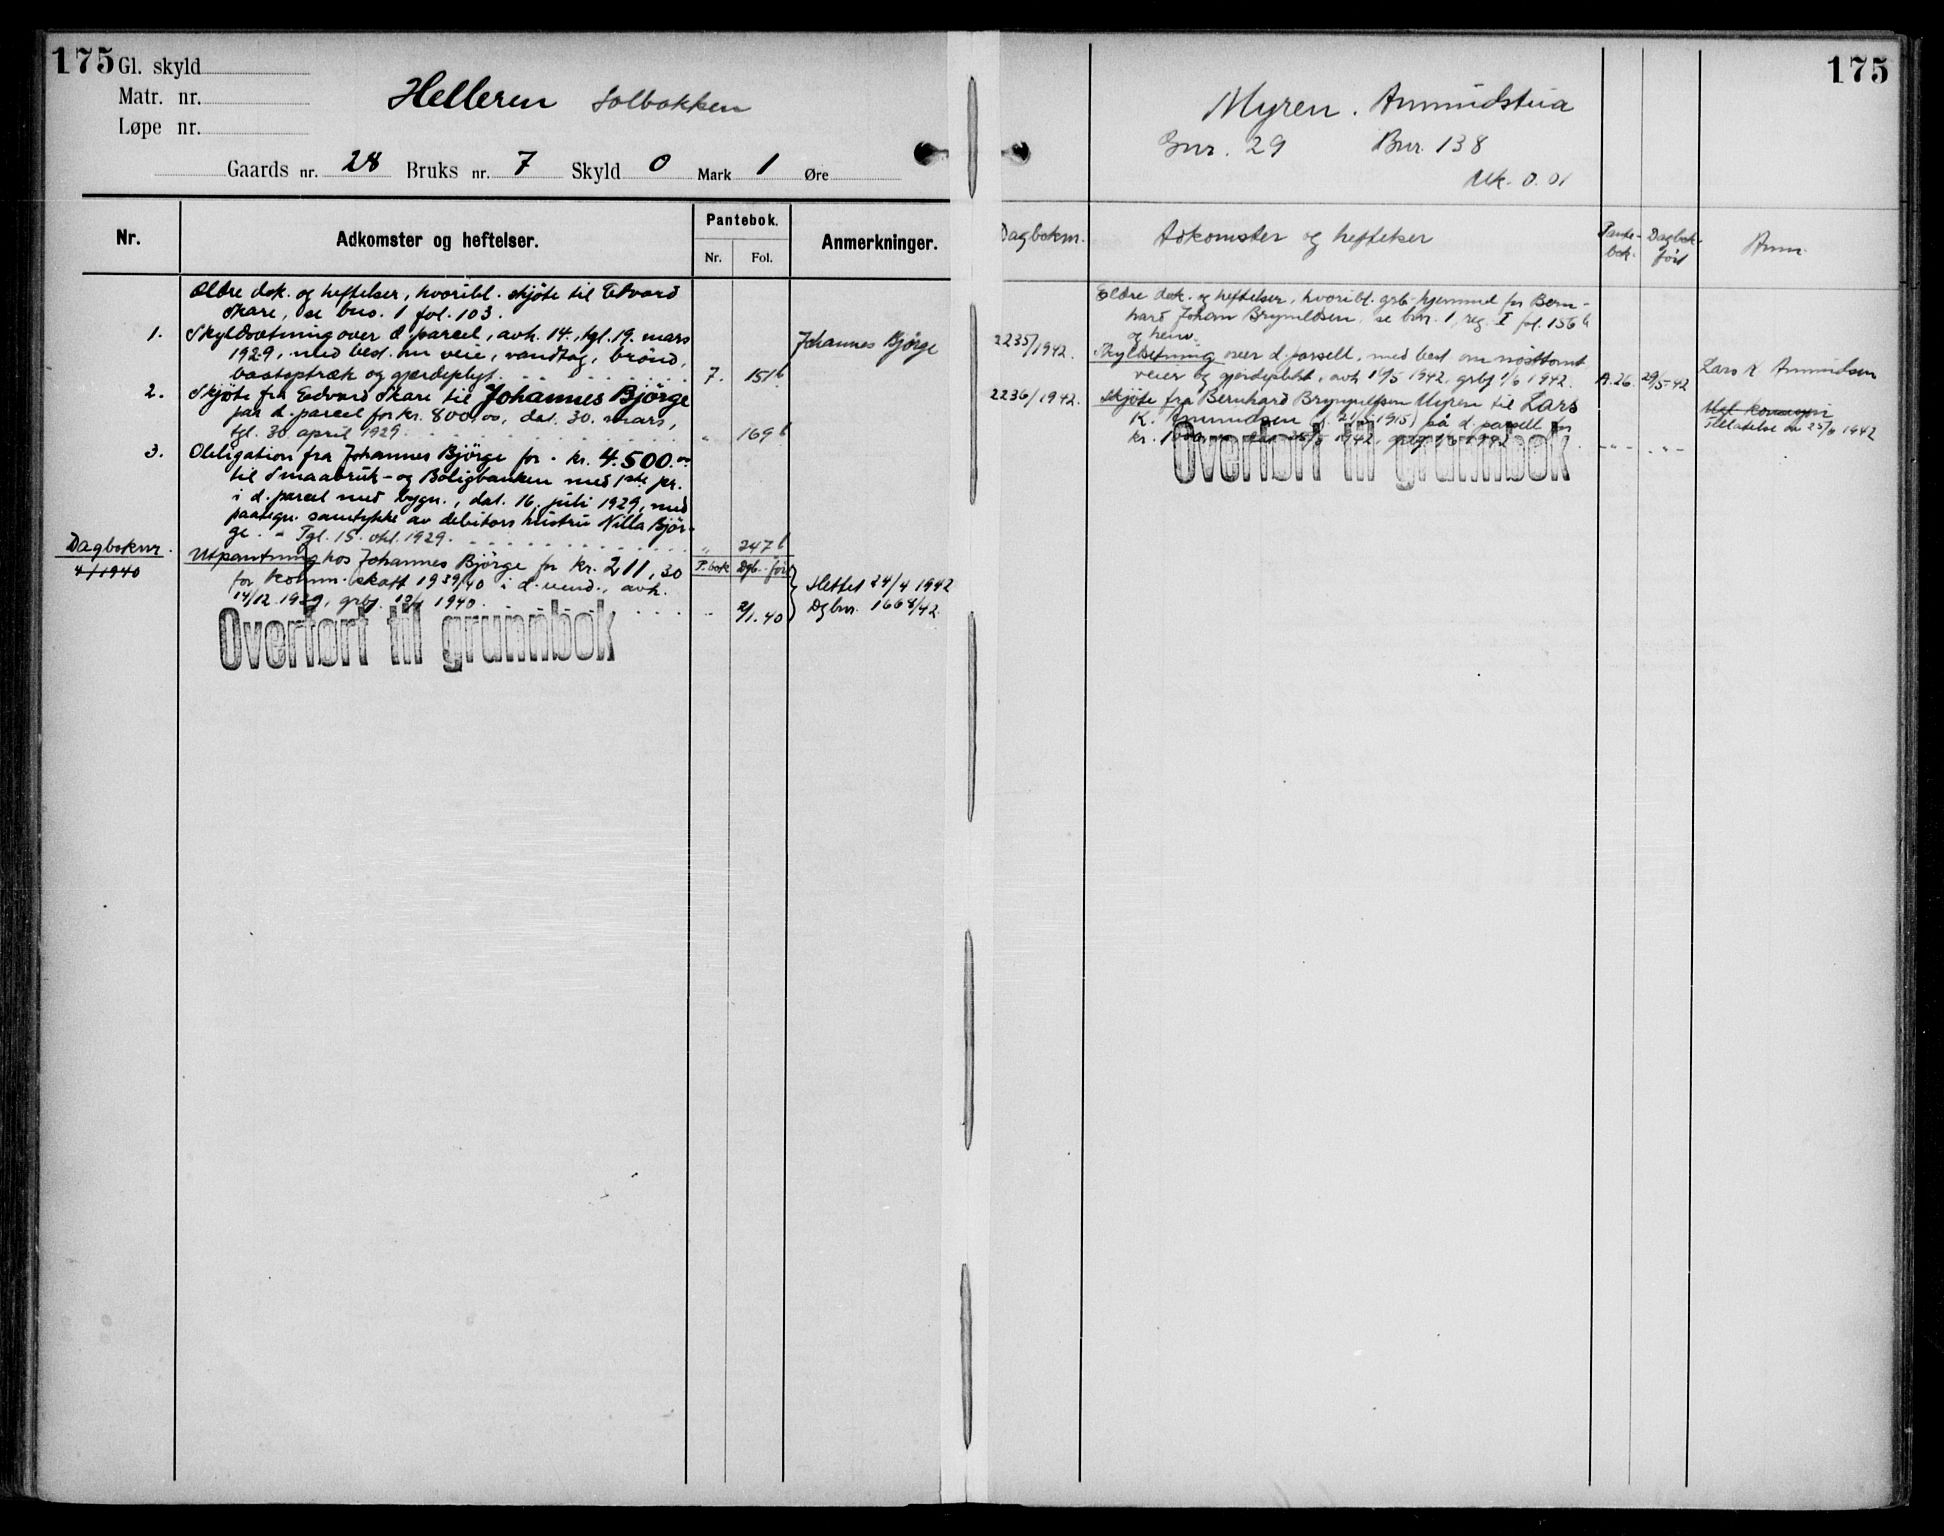 175 Gl. skyld
Matr. nr.
Løpe nr.
Helleren Solbakken
Gaards nr. 28 Bruks nr. 7 Skyld 0 Mark 1 Øre
Nr. Adkomster og heftelser. Pantebok. Anmerkninger.
Nr. Fol.
Ældre dok. og heftelser, hvoribl. skjøte til Edvard
Skare, se bns. 1 fol. 103.
1. Skyldsætning over d. parcel, avh. 14., tgl. 19. mars Johannes Bjørge
1929, med best. om veie, vandtag, brønd,
baatoptræk og gjerdeplygt. 7. 151b
2. Skjøte fra Edvard Skare til Johannes Bjørge
paa d. parcel for kr. 800.00, dat. 30. mars,
tgl. 30. april 1929. " 169b
3. Obligation fra Johannes Bjørge for kr. 4.500.00
til Smaabruk- og Boligbanken med 1ste pr.
i d. parcel med bygn., dat. 16. juli 1929, med
paategn. samtykke av debitors hustru Nilla Bjør-
ge. - Tgl. 15. okt. 1929. " 247b
Dagboknr. Utpantning hos Johannes Bjørge for kr. 211,30 P.bok Dgb. ført
4/1940 for komm. skatt 1939/40 i d. eiend., avh. Slettet 24/4 1942
14/12 1939, grbf. 1940 " 2/1.40 Dgbnr. 1668/42
Overført til grunnbok
175
Myren. Amundstua
Gnr. 29 Bnr. 138
Mk. 0.01
Dagboknr. Adkomster og heftelser Pante-bok. Dagbok-ført Anm.
Eldre dok. og heftelser, hvoribl. grb. hjemmel for Bern-
hard Johan Brynildsen, se bnr. 1, reg. I fol. 156b
og henv.
2235/1942. Skyldsetning over d. parsell, med best. om nøsttomt
veier og gjerdeplikt, avh. 1942, grbf. 1/6 1942. A.26. 29/5-42 Lars K. Amundsen
2236/1942. Skjøte fra Bernhard Brynjulfsen Myren til Lars
K. Amundsen (f. 1915) på d. parsell for
kr. 1942, grbf. 1942 " " Tillatelse av 25/6 1942
Overført til grunnbok